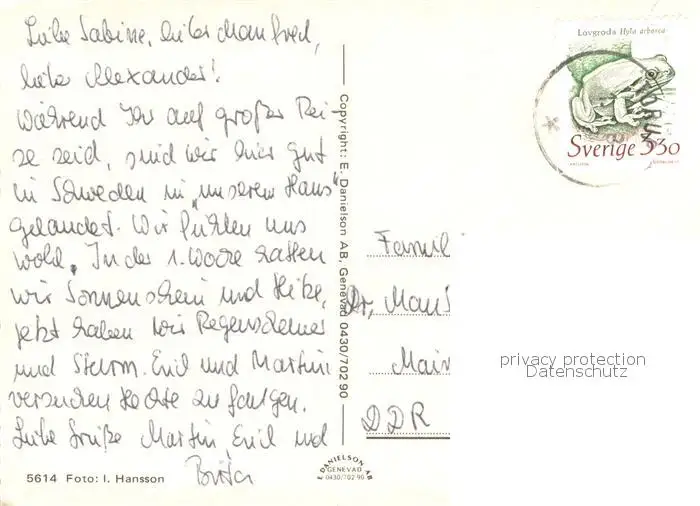 Liebe Sabine, lieber Manfred,
lieber Alexander!
Während Ihr auf großer Rei-
se seid, sind wir hier gut
in Schweden in „unserem Haus"
gelandet. Wir fühlen uns
wohl. In der 1. Woche hatten
wir Sonnenschein und Hitze,
jetzt haben wir Regenschauer
und Sturm. Emil und Martin
versuchen Hechte zu fangen.
Liebe Grüße Martin, Emil und
Britta
5614 Foto: I. Hansson
Copyright: E. Danielson AB, Genevad 0430/702 90
E DANIELSON AB
GENEVAD
0430/702 90
Lövgroda Hyla arborea
Sverige 330
Famil
Dr, Man
Main
DDR
privacy protection
Datenschutz